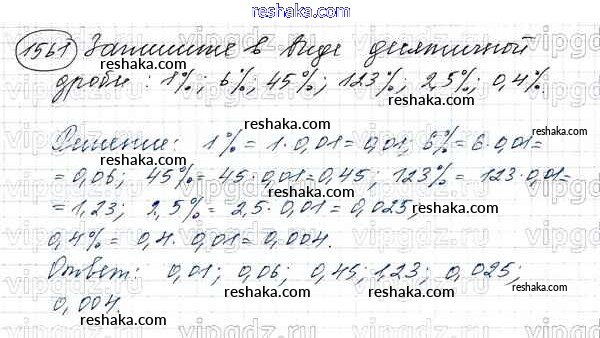 reshaka.com
1561 Запишите в виде десятичной
дроби: 1%; 6%; 45%; 123%; 2,5%; 0,4%
reshaka.com
Решение: 1% = 1·0,01 = 0,01; 6% = 6·0,01=
reshaka.com reshaka.com
= 0,06; 45% = 45·0,01=0,45; 123% = 123·0,01=
reshaka.com
= 1,23; 2,5% = 2,5·0,01=0,025;
reshaka.com
0,4% = 0,4·0,01=0,004.
reshaka.com
Ответ: 0,01; 0,06; 0,45; 1,23; 0,025;
reshaka.com reshaka.com
0,004.
reshaka.com
vipgdz